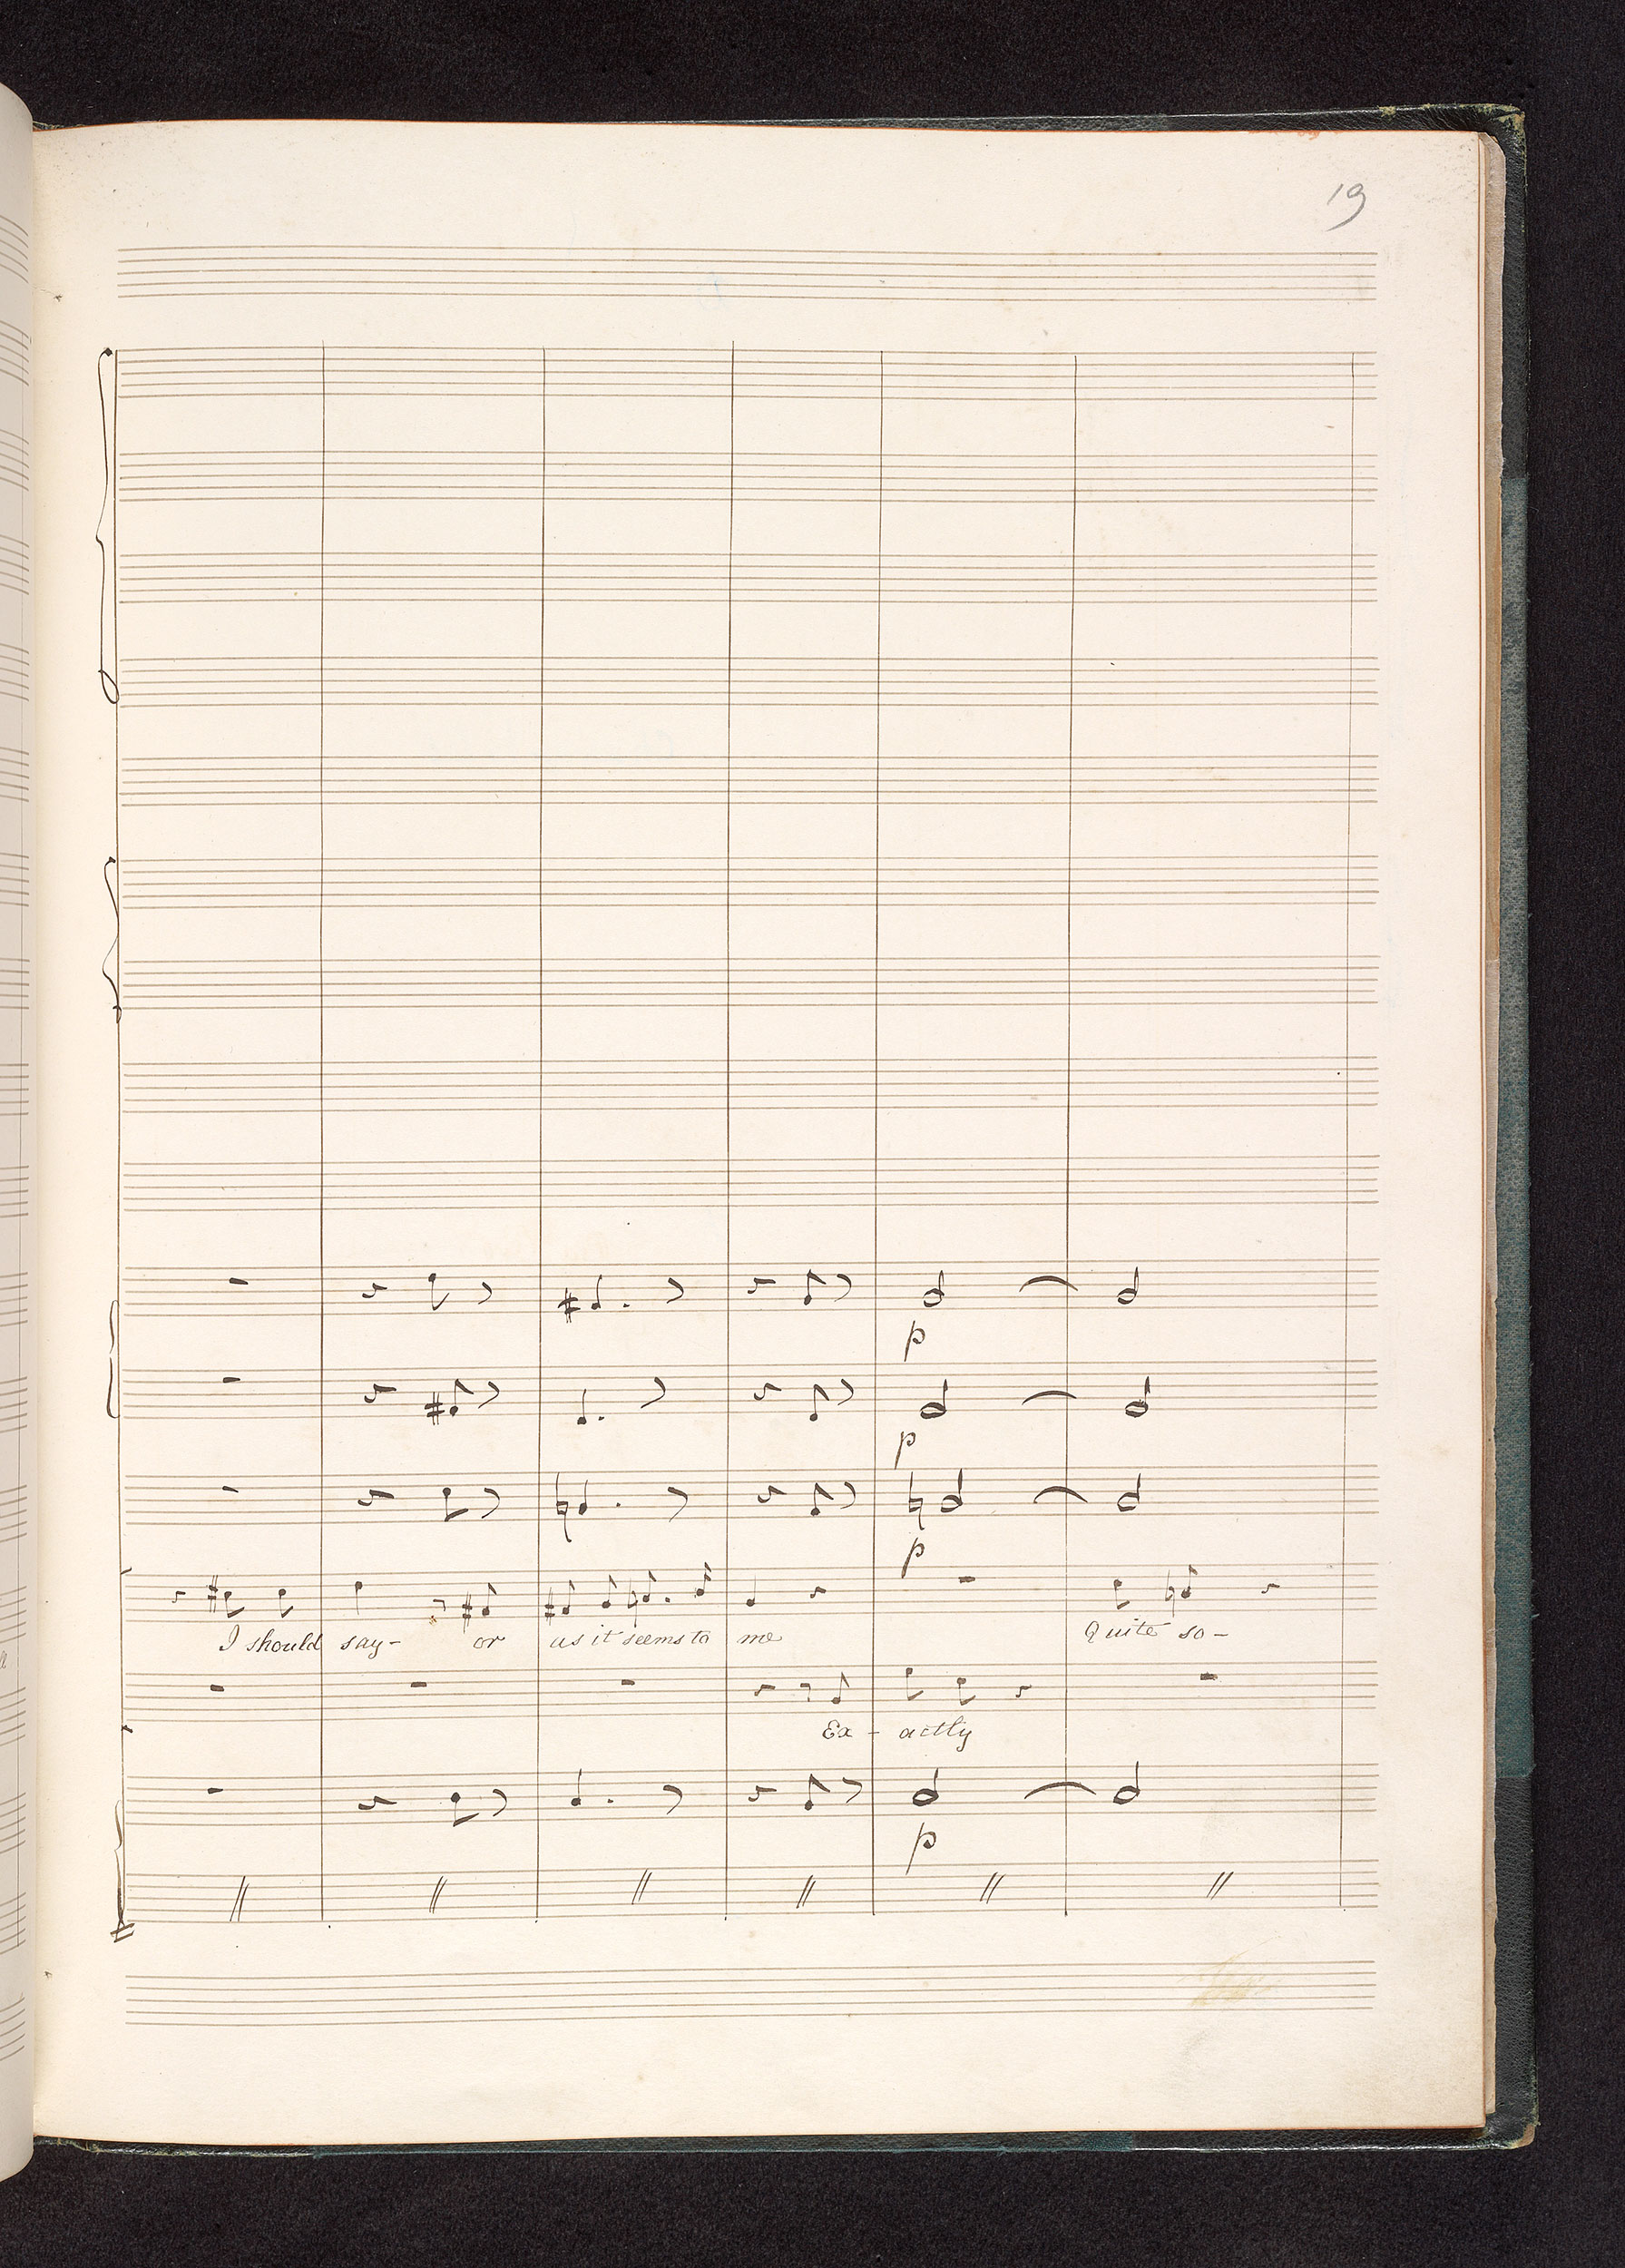 19
p
p
p
I should say- or as it seems to me Quite so-
Ex - actly
p